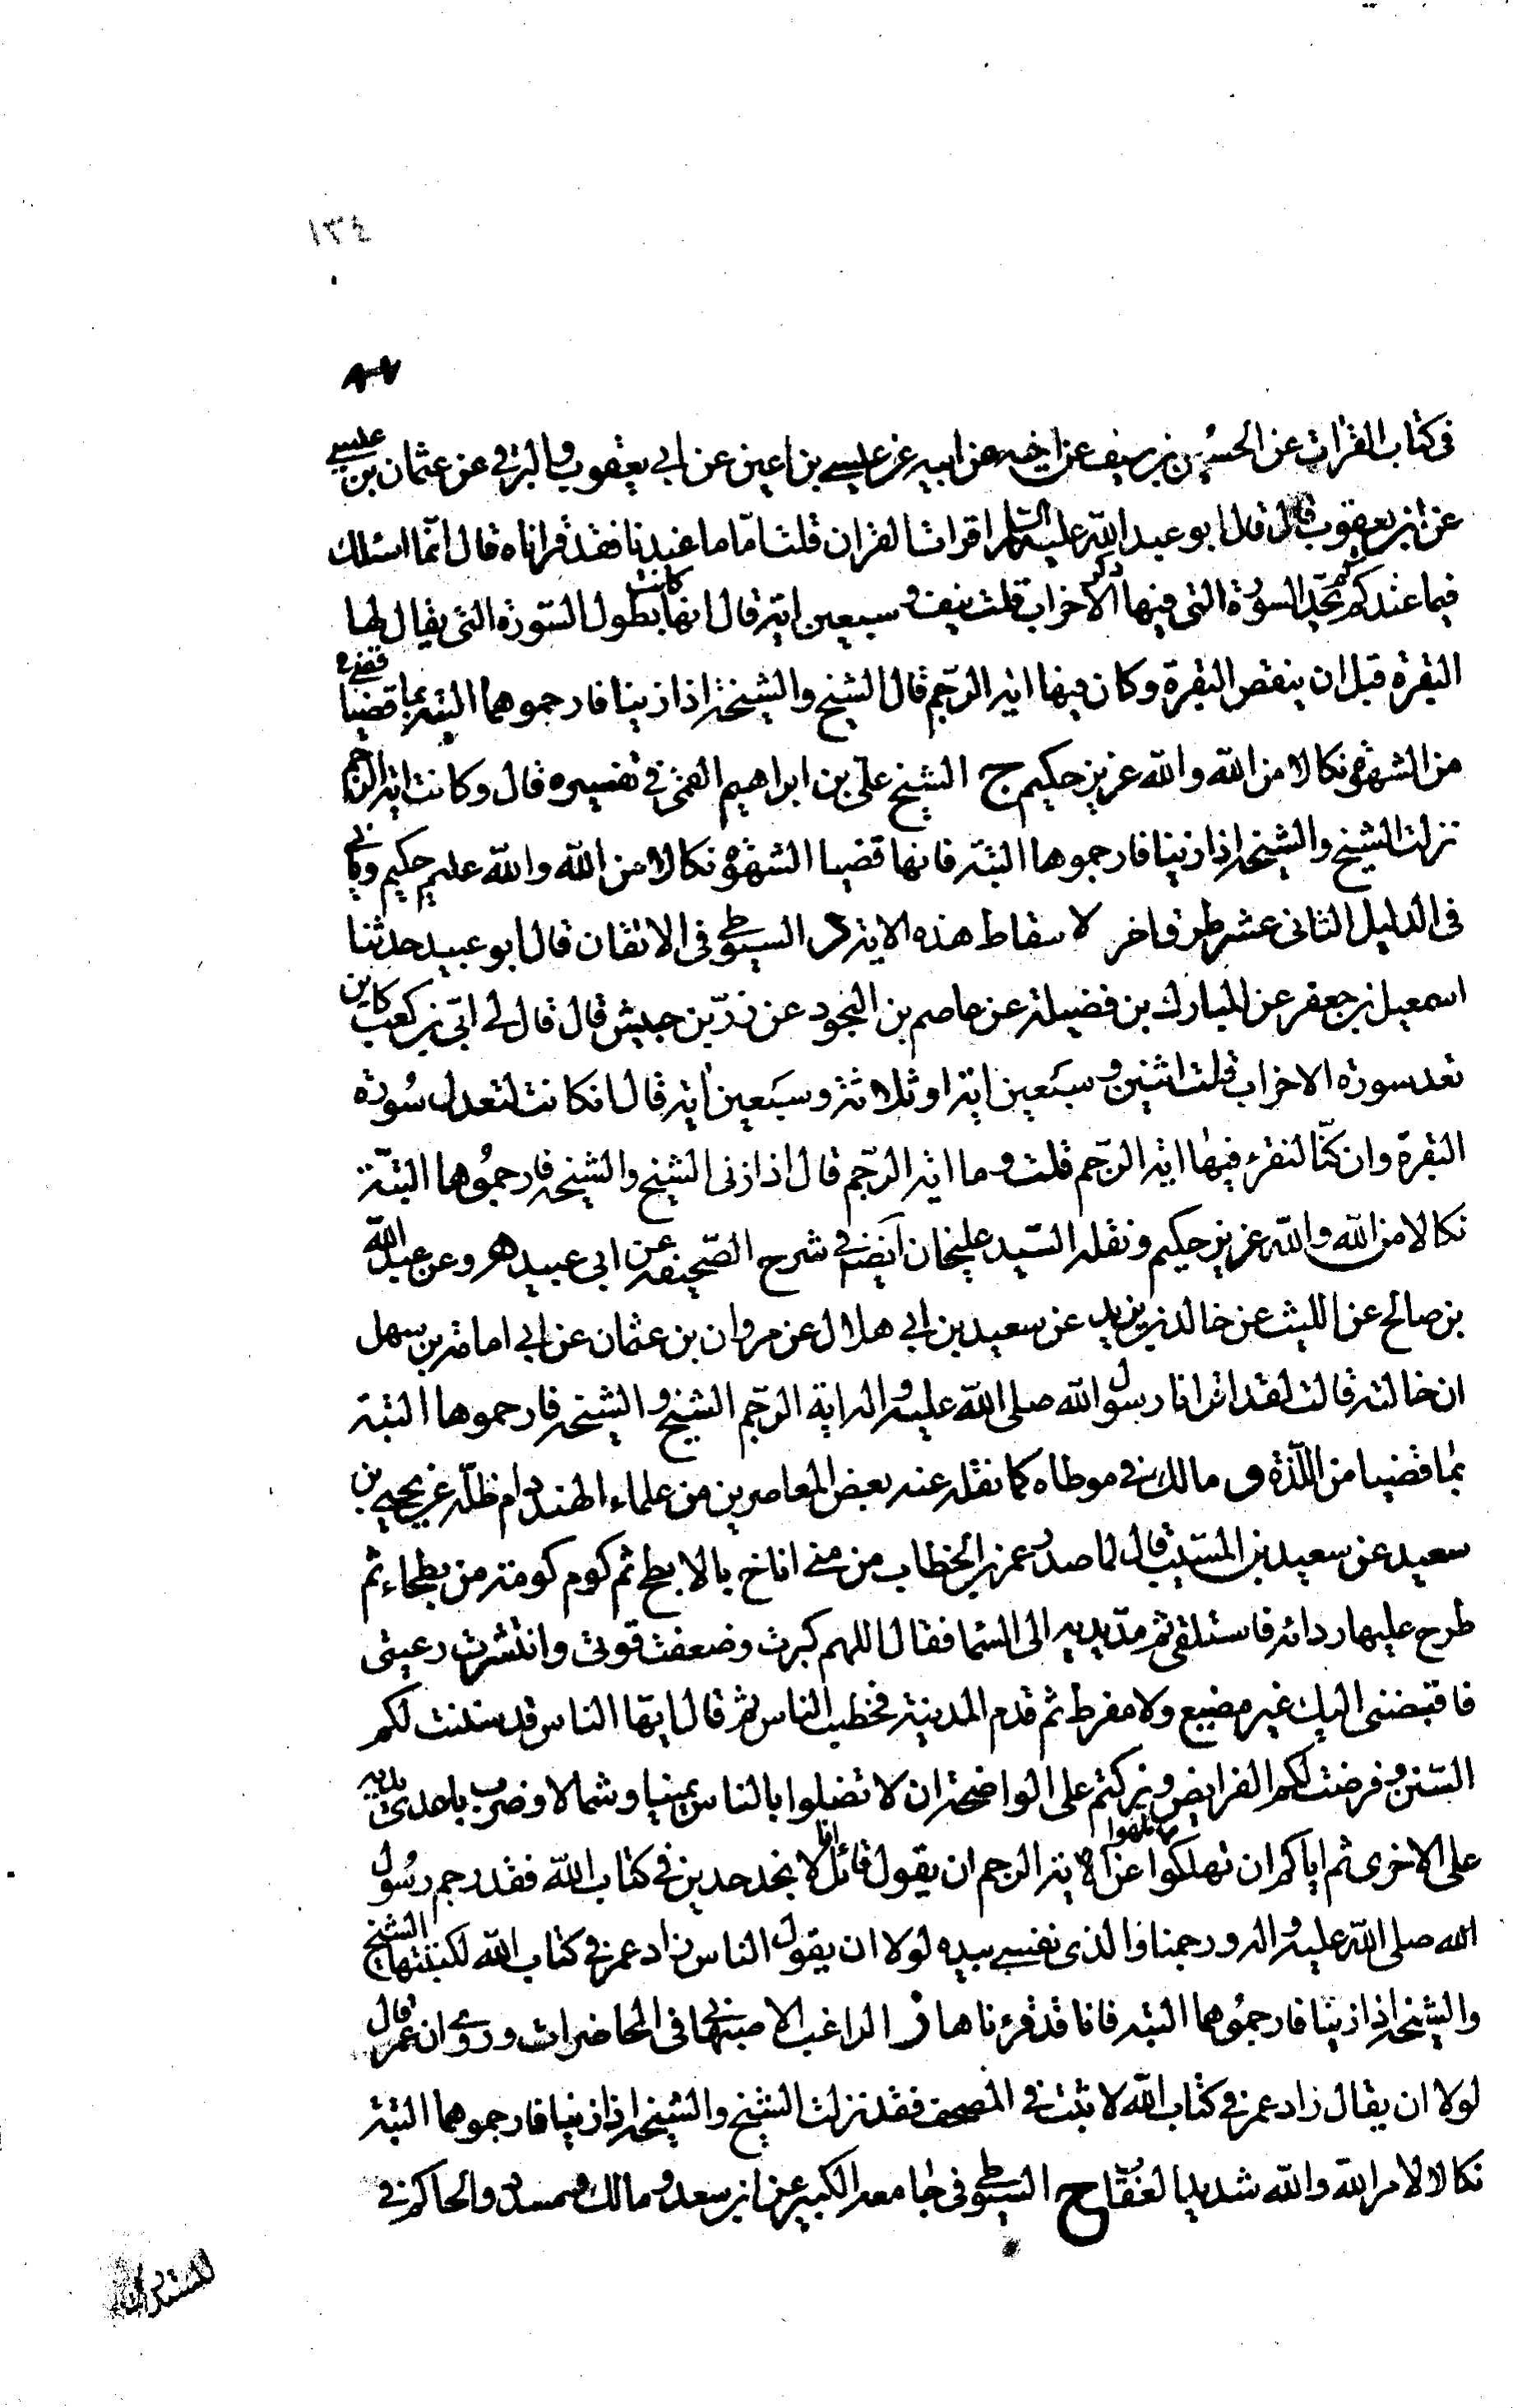 ١٣٤
في كتاب القرآت عن الحسين بن سيف عن اخيه عن ابيه عن عيسى بن اعين عن ابي يعقوب والبرقي عن عثمان بن عيسى
عن ابن يعقوب قال قال ابو عبد الله عليه السلام اقرات القران قلت امّا ما عندنا فقد قراناه قال انّما اسئلك
فيما عندكم كم تجد السورة التى فيها ذكر الاحزاب قلت نيف و سبعين اية قال انها كانت بطول السورة التى يقال لها
البقرة قبل ان ينقص البقرة وكان فيها اية الرّجم قال الشيخ والشيخة اذا زنيا فارجموهما البتة بما قضيا
من الشهوة نكالا من الله والله عزيز حكيم ج الشيخ على بن ابراهيم القمى في تفسيره قال وكانت اية الرّجم
نزلت الشيخ والشيخة اذا زنيا فارجموها البتة فانها قضيا الشهوة نكالا من الله والله عليم حكيم وياتي
في الدليل الثانى عشر طرق اخر لاسقاط هذه الاية د السيوطي في الاتقان قال ابو عبيد حدثنا
اسمعيل بن جعفر عن المبارك بن فضيلة عن عاصم بن النجود عن زرّ بن حبيش قال قال لي ابيّ بن كعب كاين
تعد سورة الاحزاب قلت اثنين و سبعين اية او ثلاثة وسبعين اية قال ان كانت لتعدل سورة
البقرة وان كنّا لنقرء فيها اية الرّجم قلت و ما اية الرّجم قال اذا زنى الشيخ والشيخة فارجموهما البتّة
نكالا من الله والله عزيز حكيم ونقله السّيد عليخان ايضا في شرح الصّحيفة عن ابى عبيد ه وعن عبد الله
بن صالح عن الليث عن خالد بن يزيد عن سعيد بن ابي هلال عن مروان بن عثمان عن ابي امامة بن سهل
ان خالته قالت لقد اقرانا رسول الله صلى الله عليه و اله اية الرّجم الشيخ و الشيخة فارجموها البتة
بما قضيا من اللّذة و مالك في موطاه كما نقله عنه بعض المعاصرين من علماء الهند دام ظلّه عن يحيى بن
سعيد عن سعيد بن المسيّب قال لما صدر عمر بن الخطاب من منى اناخ بالابطح ثم كوم كومة من بطحاء ثم
طرح عليها ردائه فاستلقى ثم مدّ يديه الى السّما فقال اللهم كبرت وضعفت قوتى وانتشرت رعيتى
فاقبضنى اليك غير مضيع ولا مفرط ثم قدم المدينة فخطب الناس ثم قال ايّها الناس قد سننت لكم
السّنن و فرضت لكم الفرايض و تركتم على الواضحة ان لا تضلوا بالناس يمينا وشمالا وضرب باحدى يديه
على الاخرى ثم اياكم ان تهلكوا عن اية الرجم ان يقول قائل انا لا نجد حدين في كتاب الله فقد رجم رسول
الله صلى الله عليه و اله و رجمنا فوالذى نفسي بيده لولا ان يقول الناس زاد عمر في كتاب الله لكتبتها الشيخ
والشيخة اذا زنيا فارجموهما البتة فانا قد قرءناها ز الراغب الاصبهاني في المحاضرات وروى ان عمر قال
لولا ان يقال زاد عمر في كتاب الله لاثبت في المصحف فقد نزلت الشيخ والشيخة اذا زنيا فارجموهما البتة
نكالا لامر الله والله شديد العقاب ح السيوطي في جامعه الكبير عن ابن سعد و مالك و مسدد والحاكم في